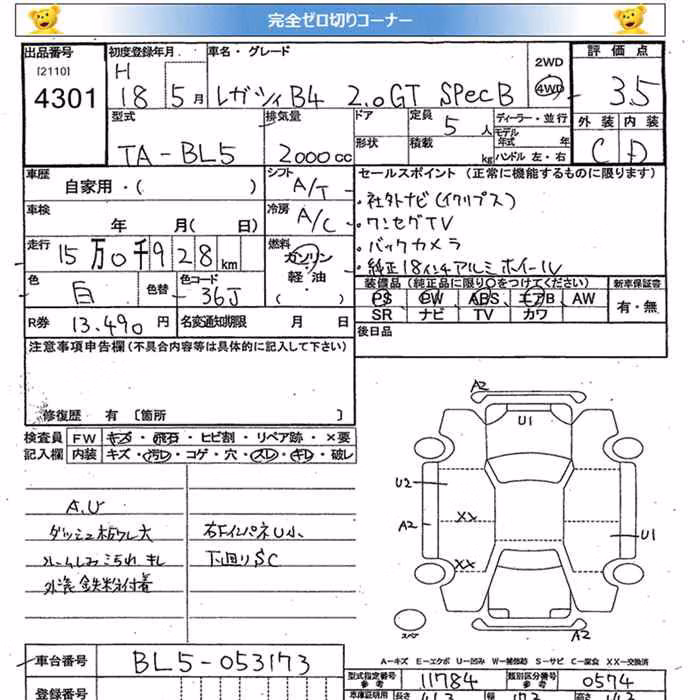 完全ゼロ切りコーナー
出品番号 [2110] 4301
初度登録年月 H 18 5月
車名・グレード レガシィB4 2.0GT SPecB
2WD 4WD
評価点 3.5
外装 内装 C D
型式 TA-BL5
排気量 2000cc
ドア 形状
定員 5人
積載 kg
ディーラー・並行
モデル年式 年
ハンドル 左・右
車歴 自家用・( )
シフト A/T
セールスポイント (正常に機能するものに限ります)
・社外ナビ(イクリプス)
・ワンセグTV
・バックカメラ
・純正18インチアルミホイール
車検 年 月( 日)
冷房 A/C
走行 15万0千928km
燃料 ガソリン 軽・油 ( ・ )
色 白 色替
色コード 36J
装備品 (純正品に限り○をつけてください)
PS PW ABS エアB AW
SR ナビ TV カワ
新車保証書 有・無
R券 13.490円
名変通知期限 月 日
後日品
注意事項申告欄(不具合内容等は具体的に記入して下さい)
修復歴 有 [箇所 ]
検査員記入欄
FW キズ・飛石・ヒビ割・リペア跡・×要
内装 キズ・汚レ・コゲ・穴・スレ・キレ・破レ
A.U
ダッシュ板ワレ大
ルームしみ汚れ キレ
外装 鉄粉付着
右FインパネU小
下廻りSC
A2
U1
U2
A2
XX
XX
U1
スペア
A2
A−キズ E−エクボ U−凹み W−補修跡 S−サビ C−腐食 XX−交換済
車台番号 BL5-053173
型式指定番号 参考 11784
類別区分番号 参考 0574
登録番号
車庫証明用 長さ